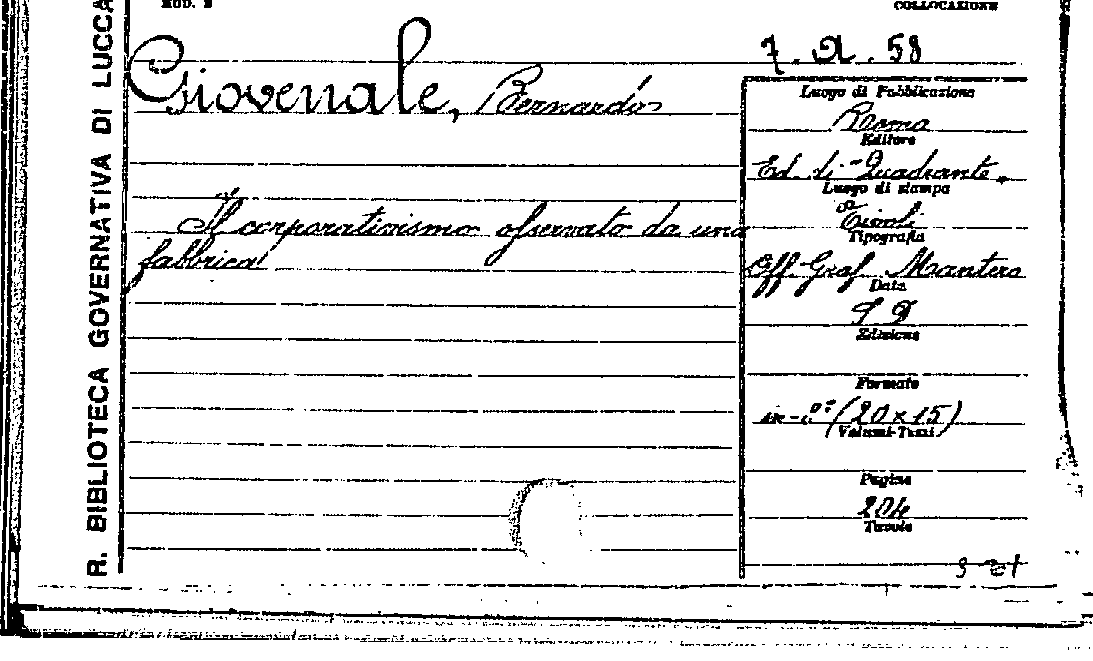 R. BIBLIOTECA GOVERNATIVA DI LUCCA
COLLOCAZIONE
7. A. 58
Giovenale, Bernardo
Il corporativismo osservato da una
fabbrica
Luogo di Pubblicazione
Roma
Editore
Ed. di Quadrante.
Luogo di stampa
Tivoli
Tipografia
Off Graf Mantero
Data
S D
Edizione
Formato
in-8°: (20x15)
Volumi-Tomi
Pagine
204
Tavole